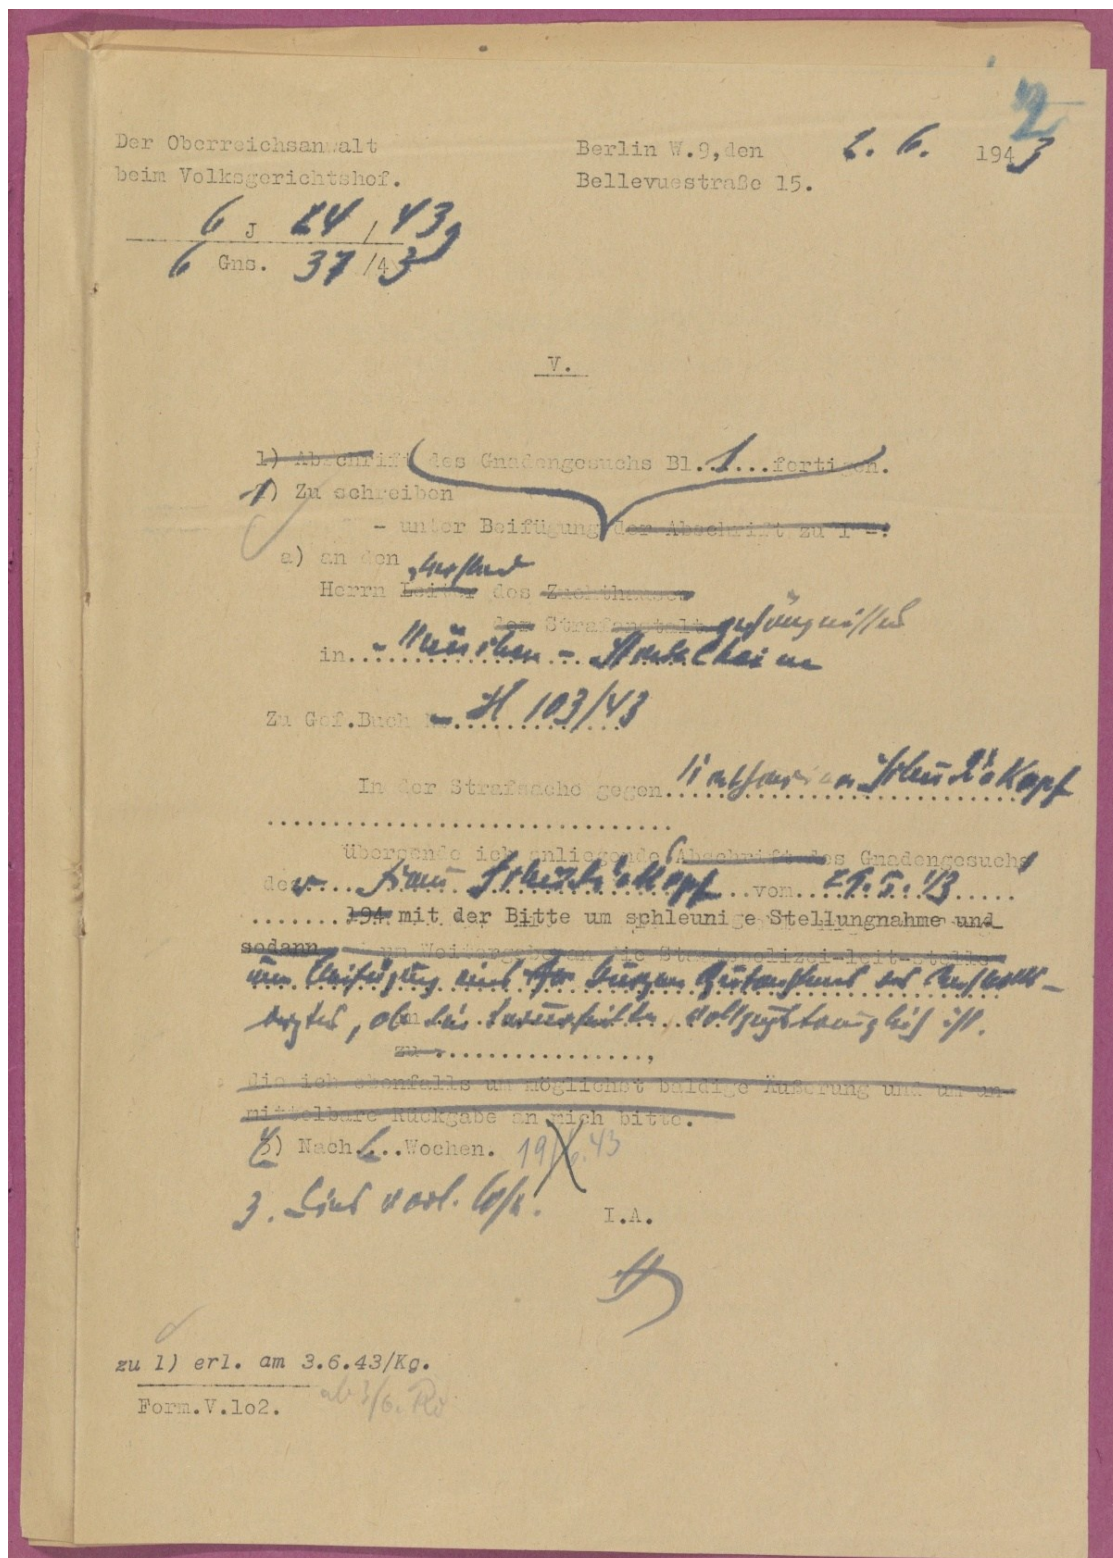 2
Der Oberreichsanwalt
beim Volksgerichtshof.
Berlin W.9,den 2. 6. 1943
Bellevuestraße 15.
6 J 24 / 43g
6 Gns. 37 /43
V.
1) Abschrift des Gnadengesuchs Bl. 1 ...fertigen.
1) Zu schreiben
- unter Beifügung der Abschrift zu 1 -:
a) an den
Herrn Leiter Vorstand des Zuchthauses
der Strafanstalt gefängnisses
in München - Stadelheim
Zu Gef.Buch H 103/43
In der Strafsache gegen
übersende ich anliegende Abschrift des Gnadengesuchs
der Frau vom 29. 5. 43
194 mit der Bitte um schleunige Stellungnahme und
sodann um Weitergabe an die Staatspolizei-leit-stelle
um Beifügung eines kurzen Gutachtens des Anstalts-
arztes, ob die Verurteilte vollzugstauglich ist.
zu ................,
die ich ebenfalls um möglichst baldige Äußerung und um un-
mittelbare Rückgabe an mich bitte.
) Nach ... Wochen. 19/6.43
3.
I.A.
zu 1) erl. am 3.6.43/Kg.
Form.V.1o2.
ab 3/6. Rö